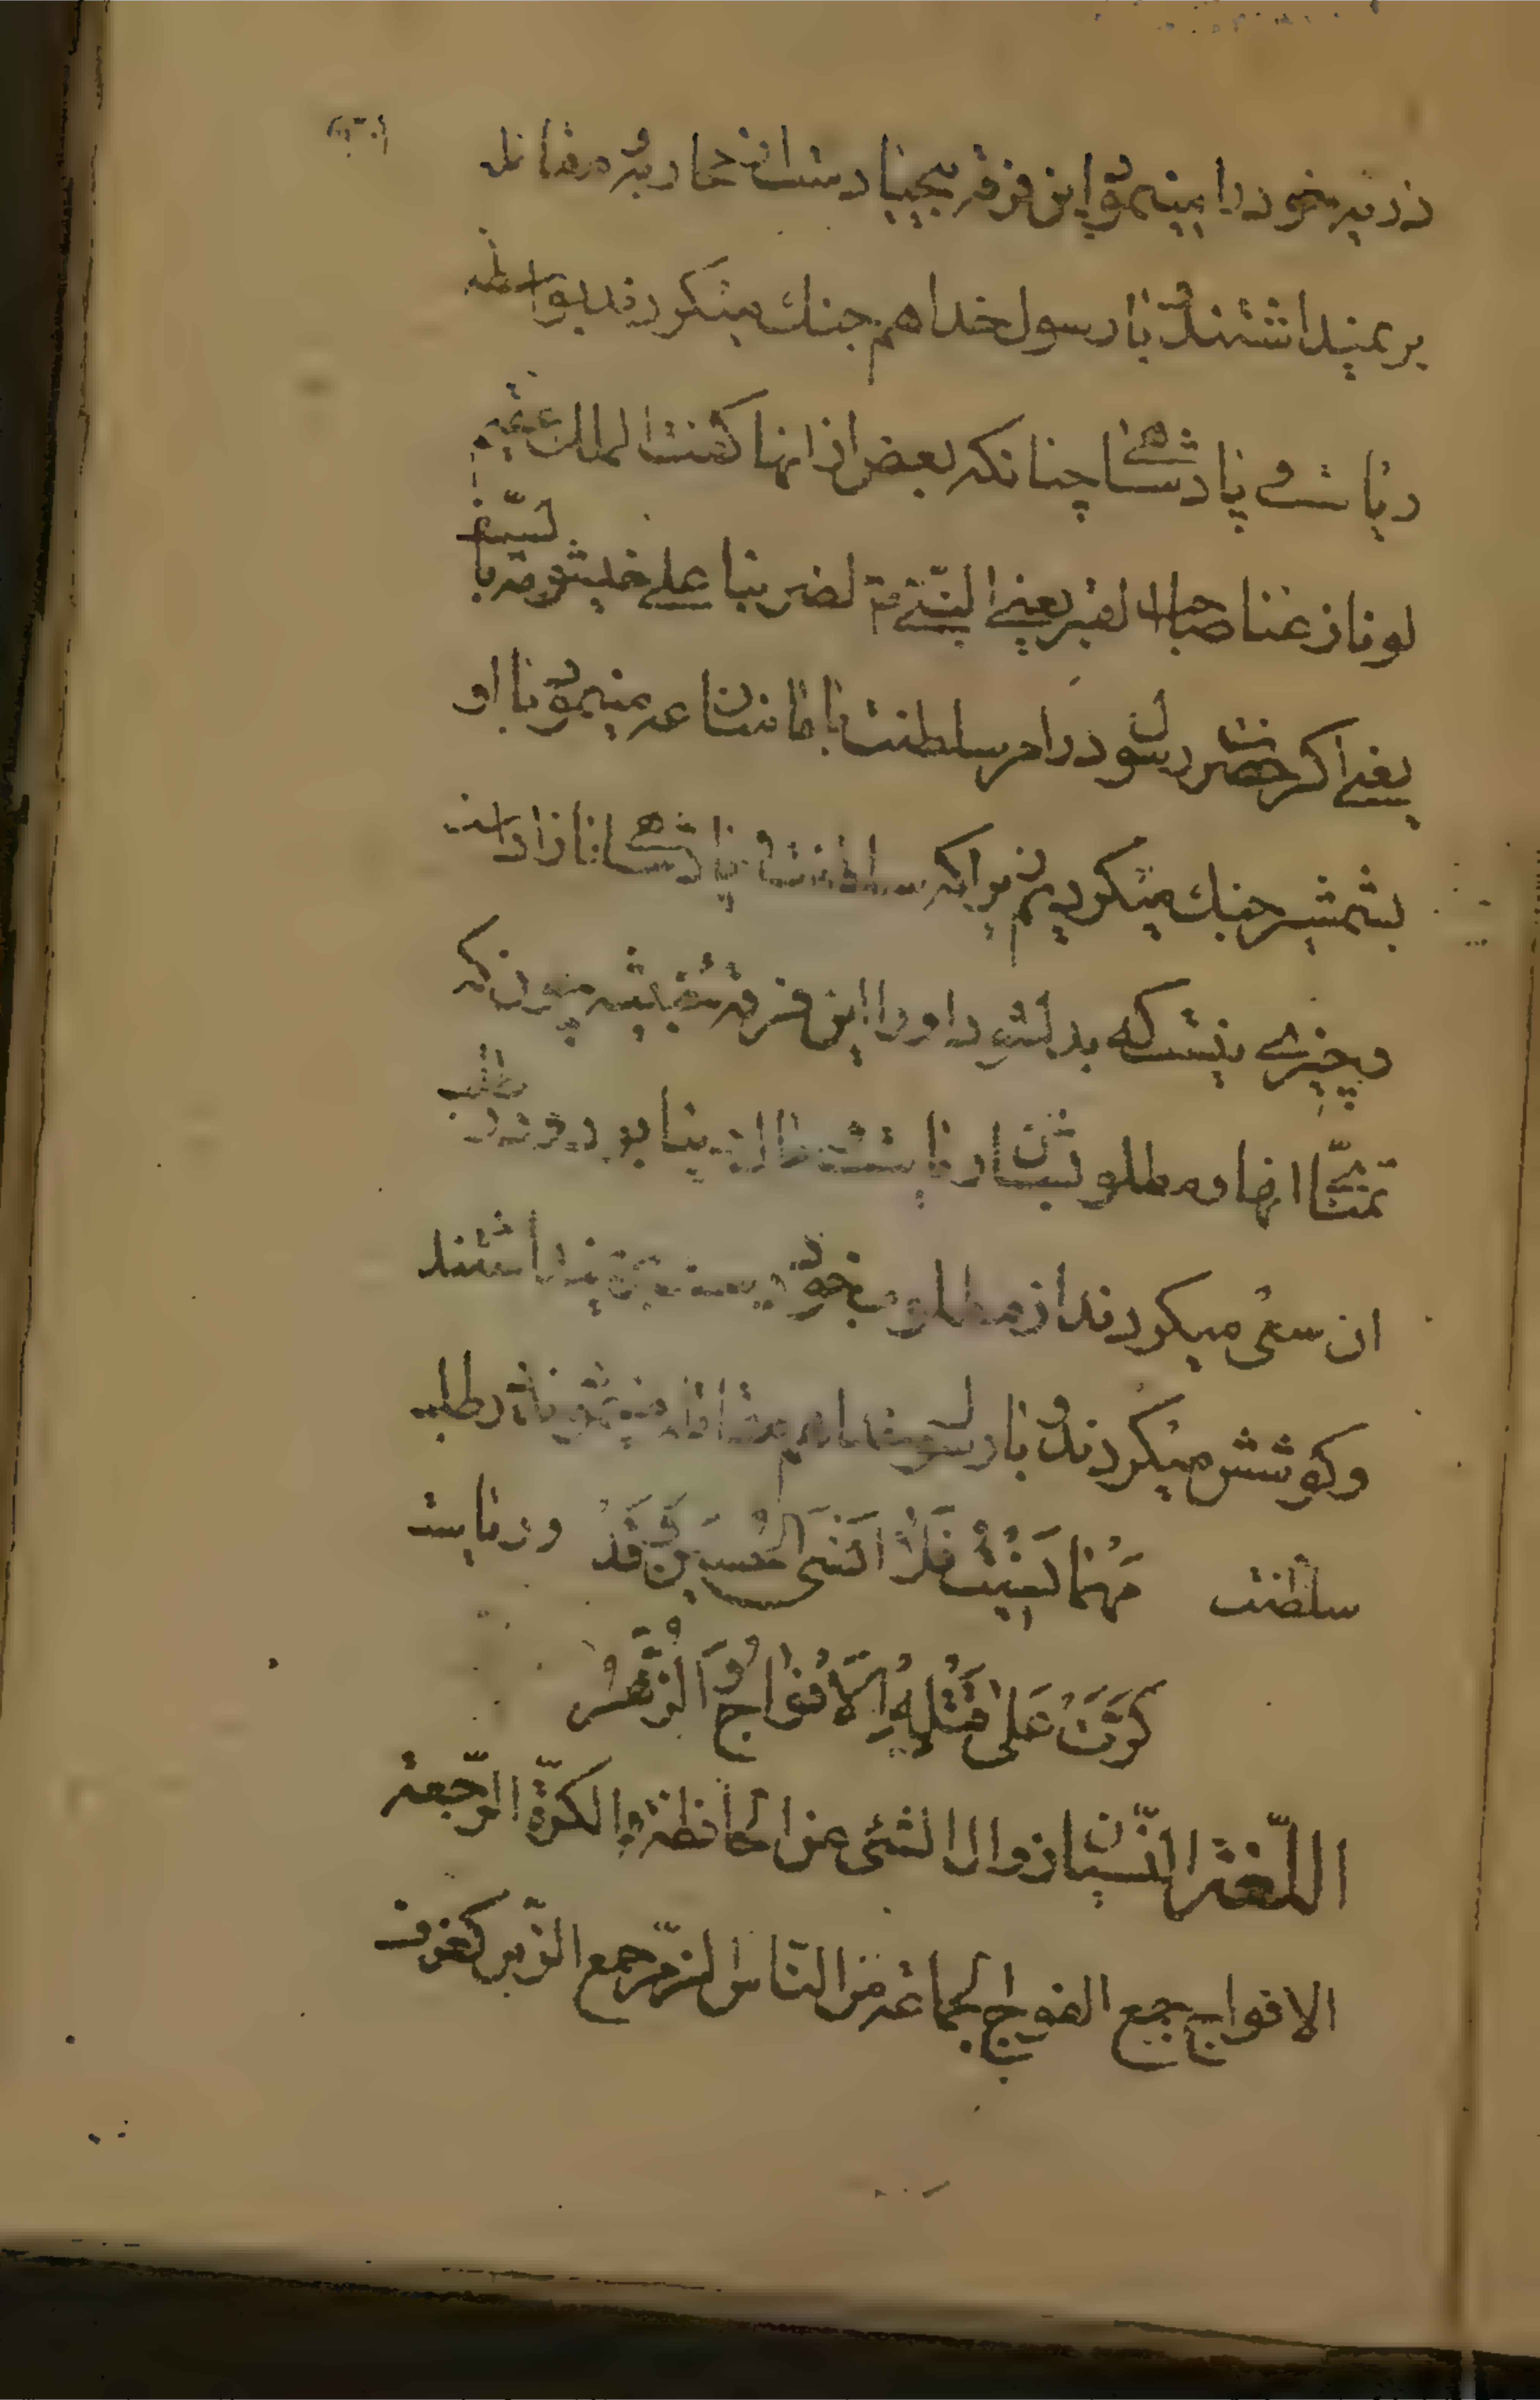 ذریه خود را مینمود این فرقه بیحیا دست از محاربه و مقاتله
بر نمیداشتند و با رسول خدا هم جنک میکردند بواسطه
ریاست و پادشاهی چنانکه بعض از آنها کفت الملك عقیم
لو نازعنا صاحب القبر یعنی النبی لضربنا علی خیشومه بالسیف
یعنی اکر حضرت رسول در امر سلطنت با ما منازعه مینمود با او
بشمشیر جنك میکردیم زیرا که سلطنت و پادشاهی
چیزی نیست که بدلشود او را این فرقه چون که
تمنای انها و مطلوبشان ریاست بود و در طلب
ان سعی میکردند از مطلوب خود دست بر نمیداشتند
و کوشش میکردند و با رسول خدا هم مقاتله مینمودند در طلب
سلطنت و ریاست مَهْما نَسِیْتُ فَلا اَنْسَی الْحُسَیْنَ وَ قَدْ
کَرَّتْ عَلی قَتْلِهِ الْاَفْواجُ وَ الزُّمَرُ
اللّغة النّسیان زوال الشئ عن الحافظة و الکرّة الرّجعة
الافواج جمع الفوج الجماعة من الناس الزّمر جمع الزّمرة کغرف